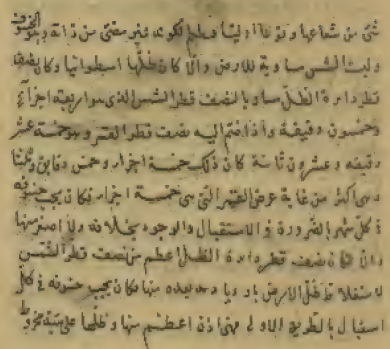 شئ من شعاعها وقوعا اوليا فيظلم لكونه غير مضئ من ذاته وهو الخسوف
وليست الشمس مساوية للارض والا كان ظلها اسطوانيا وكان نصف
قطر دائرة الظل مساويا لنصف قطر الشمس الذى هو اربعة اجزاء
وخمسون دقيقة واذا ضم اليه نصف قطر القمر وهو خمسة عشر
دقيقه وعشرون ثانية كان ذلك خمسة اجزاء وخمس دقايق وثلثا
وهى اكثر من غاية عرض القمر التى هى خمسة اجزاء فكان يجب خسوفه
فى كل شهر بالضرورة فى الاستقبال والوجود بخلافه ولا اصغر منها
والا كان نصف قطر دائرة الظل اعظم من نصف قطر الشمس
لاستغلاظ ظل الارض بازدياد بعده منها فكان يجب خسوفه فى كل
استقبال بالطريق الاولى فهى اذن اعظم منها وظلها على هيئة مخروط